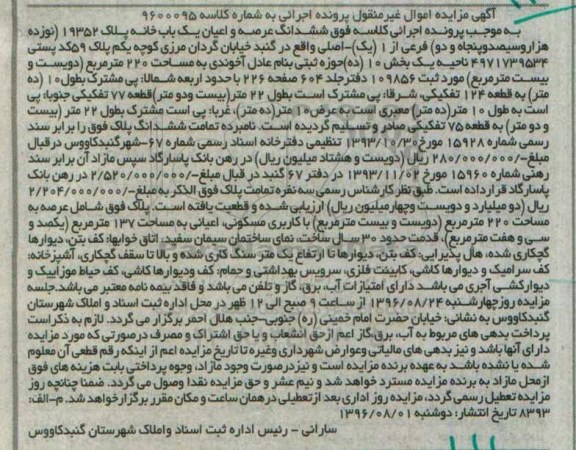 آگهی مزایده اموال غیرمنقول پرونده اجرائی به شماره کلاسه ۹۶۰۰۰۹۵
به موجب پرونده اجرائی کلاسه فوق ششدانگ عرصه و اعیان یک باب خانه پلاک ۱۹۳۵۲ (نوزده
هزاروسیصدوپنجاه و دو) فرعی از ۱ (یک)-اصلی واقع در گنبد خیابان گردان مرزی کوچه یکم پلاک ۵۹کد پستی
۴۹۷۱۷۳۹۵۳۴ ناحیه یک بخش ۱۰ (ده)حوزه ثبتی بنام عادل آخوندی به مساحت ۲۲۰ مترمربع (دویست و
بیست مترمربع) مورد ثبت ۱۰۹۸۵۶ دفترجلد ۶۰۴ صفحه ۲۲۶ با حدود اربعه شمالا: پی مشترک بطول۱۰ (ده
متر) به قطعه ۱۲۴ تفکیکی، شرقا: پی مشترک است بطول ۲۲ متر(بیست ودو متر)قطعه ۷۷ تفکیکی جنوبا: پی
است به طول ۱۰ متر(ده متر) معبری است به عرض۱۰ متر(ده متر)، غربا: پی است مشترک بطول ۲۲ متر (بیست
و دو متر) به قطعه ۷۵ تفکیکی صادر و تسلیم گردیده است. نامبرده تمامت ششدانگ پلاک فوق را برابر سند
رسمی شماره ۱۵۹۲۸ مورخ۱۳۹۳/۱۰/۳۰ تنظیمی دفترخانه اسناد رسمی شماره ۶۷-شهرگنبدکاووس درقبال
مبلغ-/۲۸۰/۰۰۰/۰۰۰ ریال (دویست و هشتاد میلیون ریال) در رهن بانک پاسارگاد سپس مازاد آن برابر سند
رهنی شماره ۱۵۹۶۰ مورخ ۱۳۹۳/۱۱/۰۲ در دفتر ۶۷ گنبد در قبال مبلغ-/۲/۵۲۰/۰۰۰/۰۰۰ در رهن بانک
پاسارگاد قرارداده است. طبق نظر کارشناس رسمی سه نفره تمامت پلاک فوق الذکر به مبلغ-/۲/۲۰۴/۰۰۰/۰۰۰
ریال (دو میلیارد و دویست وچهارمیلیون ریال) ارزیابی شده و قطعیت یافته است. پلاک فوق شامل عرصه به
مساحت ۲۲۰ مترمربع (دویست و بیست مترمربع) با کاربری مسکونی، اعیانی به مساحت ۱۳۷ مترمربع (یکصد و
سی و هفت مترمربع)، قدمت حدود ۳۰ سال ساخت، نمای ساختمان سیمان سفید، اتاق خوابها: کف بتن، دیوارها
گچکاری شده، هال پذیرایی: کف بتن، دیوارها تا ارتفاع یک متر سنگ کاری شده و بالا تا سقف گچکاری، آشپزخانه:
کف سرامیک و دیوارها کاشی، کابینت فلزی، سرویس بهداشتی و حمام: کف ودیوارها کاشی، کف حیاط موزاییک و
دیوارکشی آجری می باشد دارای امتیازات آب، برق، گاز و تلفن می باشد و فاقد بیمه نامه معتبر می باشد.جلسه
مزایده روزچهارشنبه ۱۳۹۶/۰۸/۲۴ از ساعت ۹ صبح الی ۱۲ ظهر در محل اداره ثبت اسناد و املاک شهرستان
گنبدکاووس به نشانی: خیابان حضرت امام خمینی (ره) جنوبی-جنب هلال احمر برگزار می گردد. لازم به ذکراست
پرداخت بدهی های مربوط به آب، برق،گاز اعم ازحق انشعاب و یا حق اشتراک و مصرف درصورتی که مورد مزایده
دارای آنها باشد و نیز بدهی های مالیاتی وعوارض شهرداری وغیره تا تاریخ مزایده اعم از اینکه رقم قطعی آن معلوم
شده یا نشده باشد به عهده برنده مزایده است و نیزدرصورت وجود مازاد، وجوه پرداختی بابت هزینه های فوق
ازمحل مازاد به برنده مزایده مسترد خواهد شد و نیم عشر و حق مزایده نقدا وصول می گردد. ضمنا چنانچه روز
مزایده تعطیل رسمی گردد، مزایده روز اداری بعد ازتعطیلی درهمان ساعت و مکان مقرر برگزارخواهد شد. م-الف:
۸۳۹۳ تاریخ انتشار: دوشنبه ۱۳۹۶/۰۸/۰۱
سارانی - رئیس اداره ثبت اسناد واملاک شهرستان گنبدکاووس